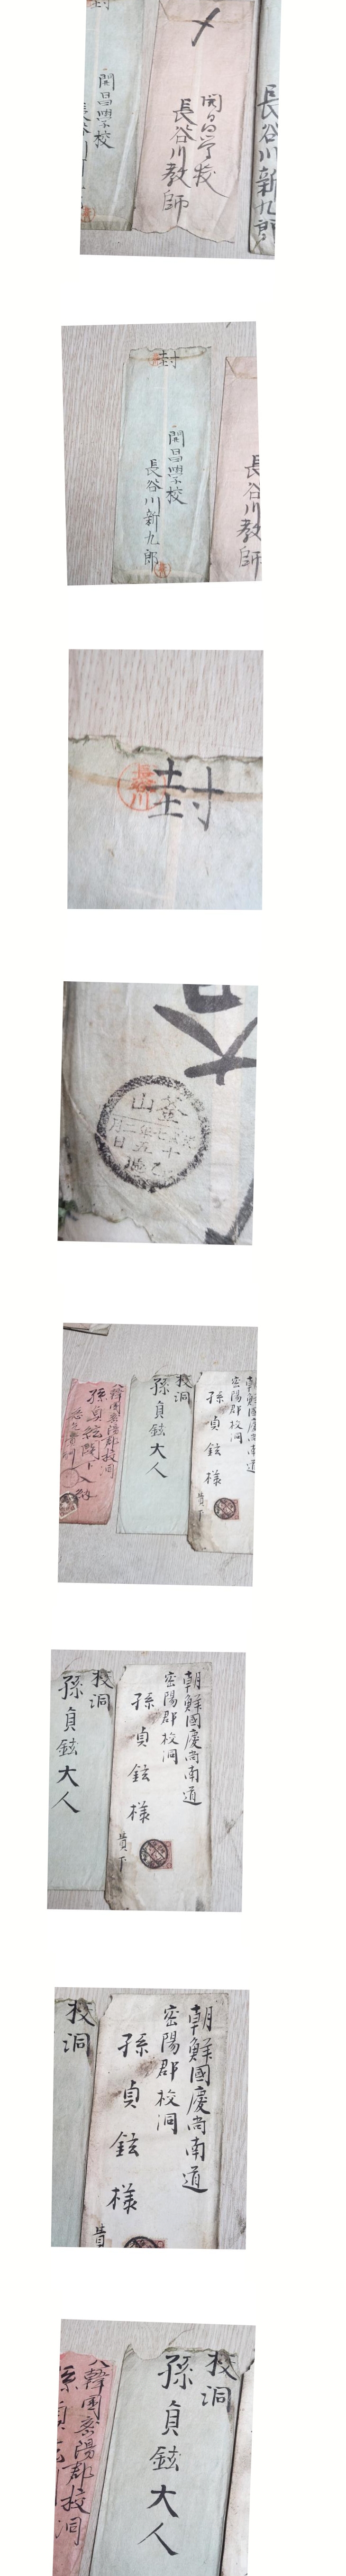 封
開昌學校
開昌学校
長谷川教師
長谷川新九郎
封
開昌學校
長谷川新九郎
長谷川教師
封
長谷川
釜山
韓國密陽郡校洞
孫貞鉉殿
校洞
孫貞鉉大人
朝鮮國慶尚南道
密陽郡校洞
孫貞鉉様
貴下
校洞
孫貞鉉大人
朝鮮國慶尚南道
密陽郡校洞
孫貞鉉様
貴下
校洞
朝鮮國慶尚南道
密陽郡校洞
孫貞鉉様
貴
韓國密陽郡校洞
校洞
孫貞鉉大人